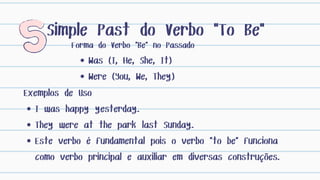 5 Simple Past do Verbo "To Be"
Forma do Verbo "Be" no Passado
• Was (I, He, She, It)
• Were (You, We, They)
Exemplos de Uso
• I was happy yesterday.
• They were at the park last Sunday.
• Este verbo é fundamental pois o verbo "to be" funciona
como verbo principal e auxiliar em diversas construções.